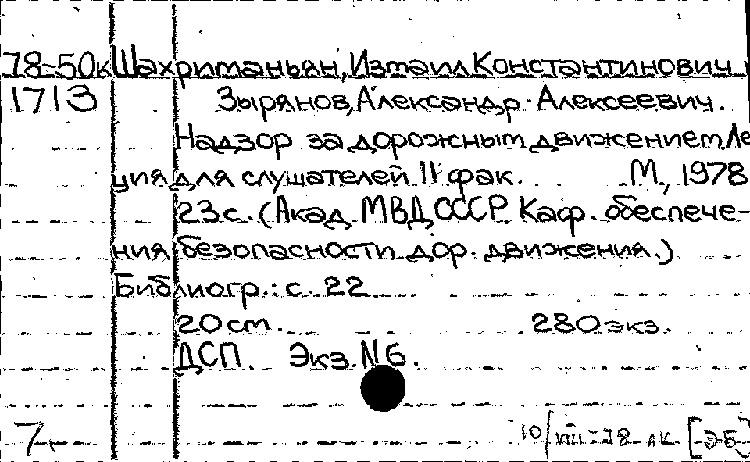 78-50к Шахриманьян, Измаил Константинович
1713 Зырянов, Александр Алексеевич.
Надзор за дорожным движением Ле
ция для слушателей II фак. М, 1978
23с. (Акад МВД СССР Каф. обеспече-
ния безопасности дор. движения.)
Библиогр.: с. 22
20 cm. 280 экз.
ДСП. Экз. N6.
7 10/VIII-78 [Э-Б]